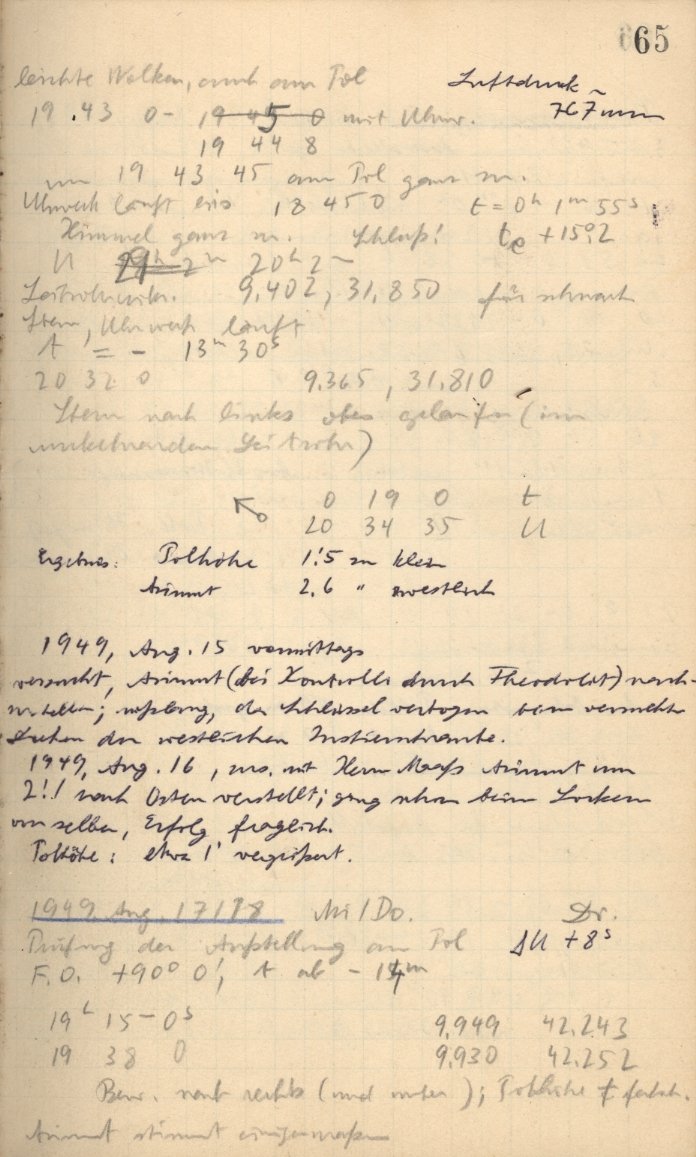 65
leichte Wolken, auch am Pol Luftdruck
19 43 0 - 19 45 0 mit Uhrw. 767 mm
19 44 8
um 19 43 45 am Pol ganz zu.
Uhrwerk läuft bis 18 45 0 t = 0h 1m 55s
Himmel ganz zu. Schluß! te +15°,2
U 20h 2m
Leitrohrmikr. 9,402, 31,850 für schwach
Stern, Uhrwerk läuft
t = - 13m 30s
20 32 0 9,365, 31,810
Stern nach links oben gelaufen (im
umkehrenden Leitrohr)
0 19 0 t
20 34 35 U
Ergebnis: Polhöhe 1!5 zu klein
Azimut 2,6 " westlich
1949, Aug. 15 vormittags
versucht, Azimut (bei Kontrolle durch Theodolit) nach-
zustellen; mißlang, da Schlüssel verbogen beim versuchten
Drehen der westlichen Justierschraube.
1949, Aug. 16, zus. mit Herrn Maaß Azimut um
2!1 nach Osten verstellt; ging schon beim Lockern
von selber, Erfolg fraglich.
Polhöhe: etwa 1' vergrößert.
1949 Aug. 17/18 Mi/Do. Dr.
Prüfung der Aufstellung am Pol ΔU +8s
F.O. +90° 0', t ab - 14m
19h 15m 0s 9,949 42,243
19 38 0 9,930 42,252
Bew. nach rechts (und unten); Polhöhe falsch.
Azimut stimmt einigermaßen